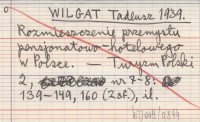 WILGAT Tadeusz 1939.
Rozmieszczenie przemysłu
pensjonatowo-hotelowego
w Polsce. — Turyzm Polski
2, nr 7-8.
139-149, 160 (2 sf.), il.